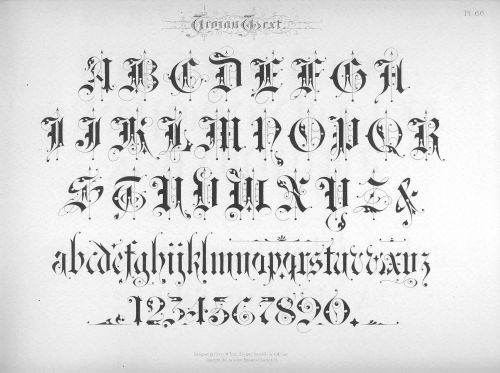 Pl. 66.
Trojan Text.
A B C D E F G H
I J K L M N O P Q R
S T U V W X Y Z &
abcdefghijklmnopqrstuvwxyz
1234567890.